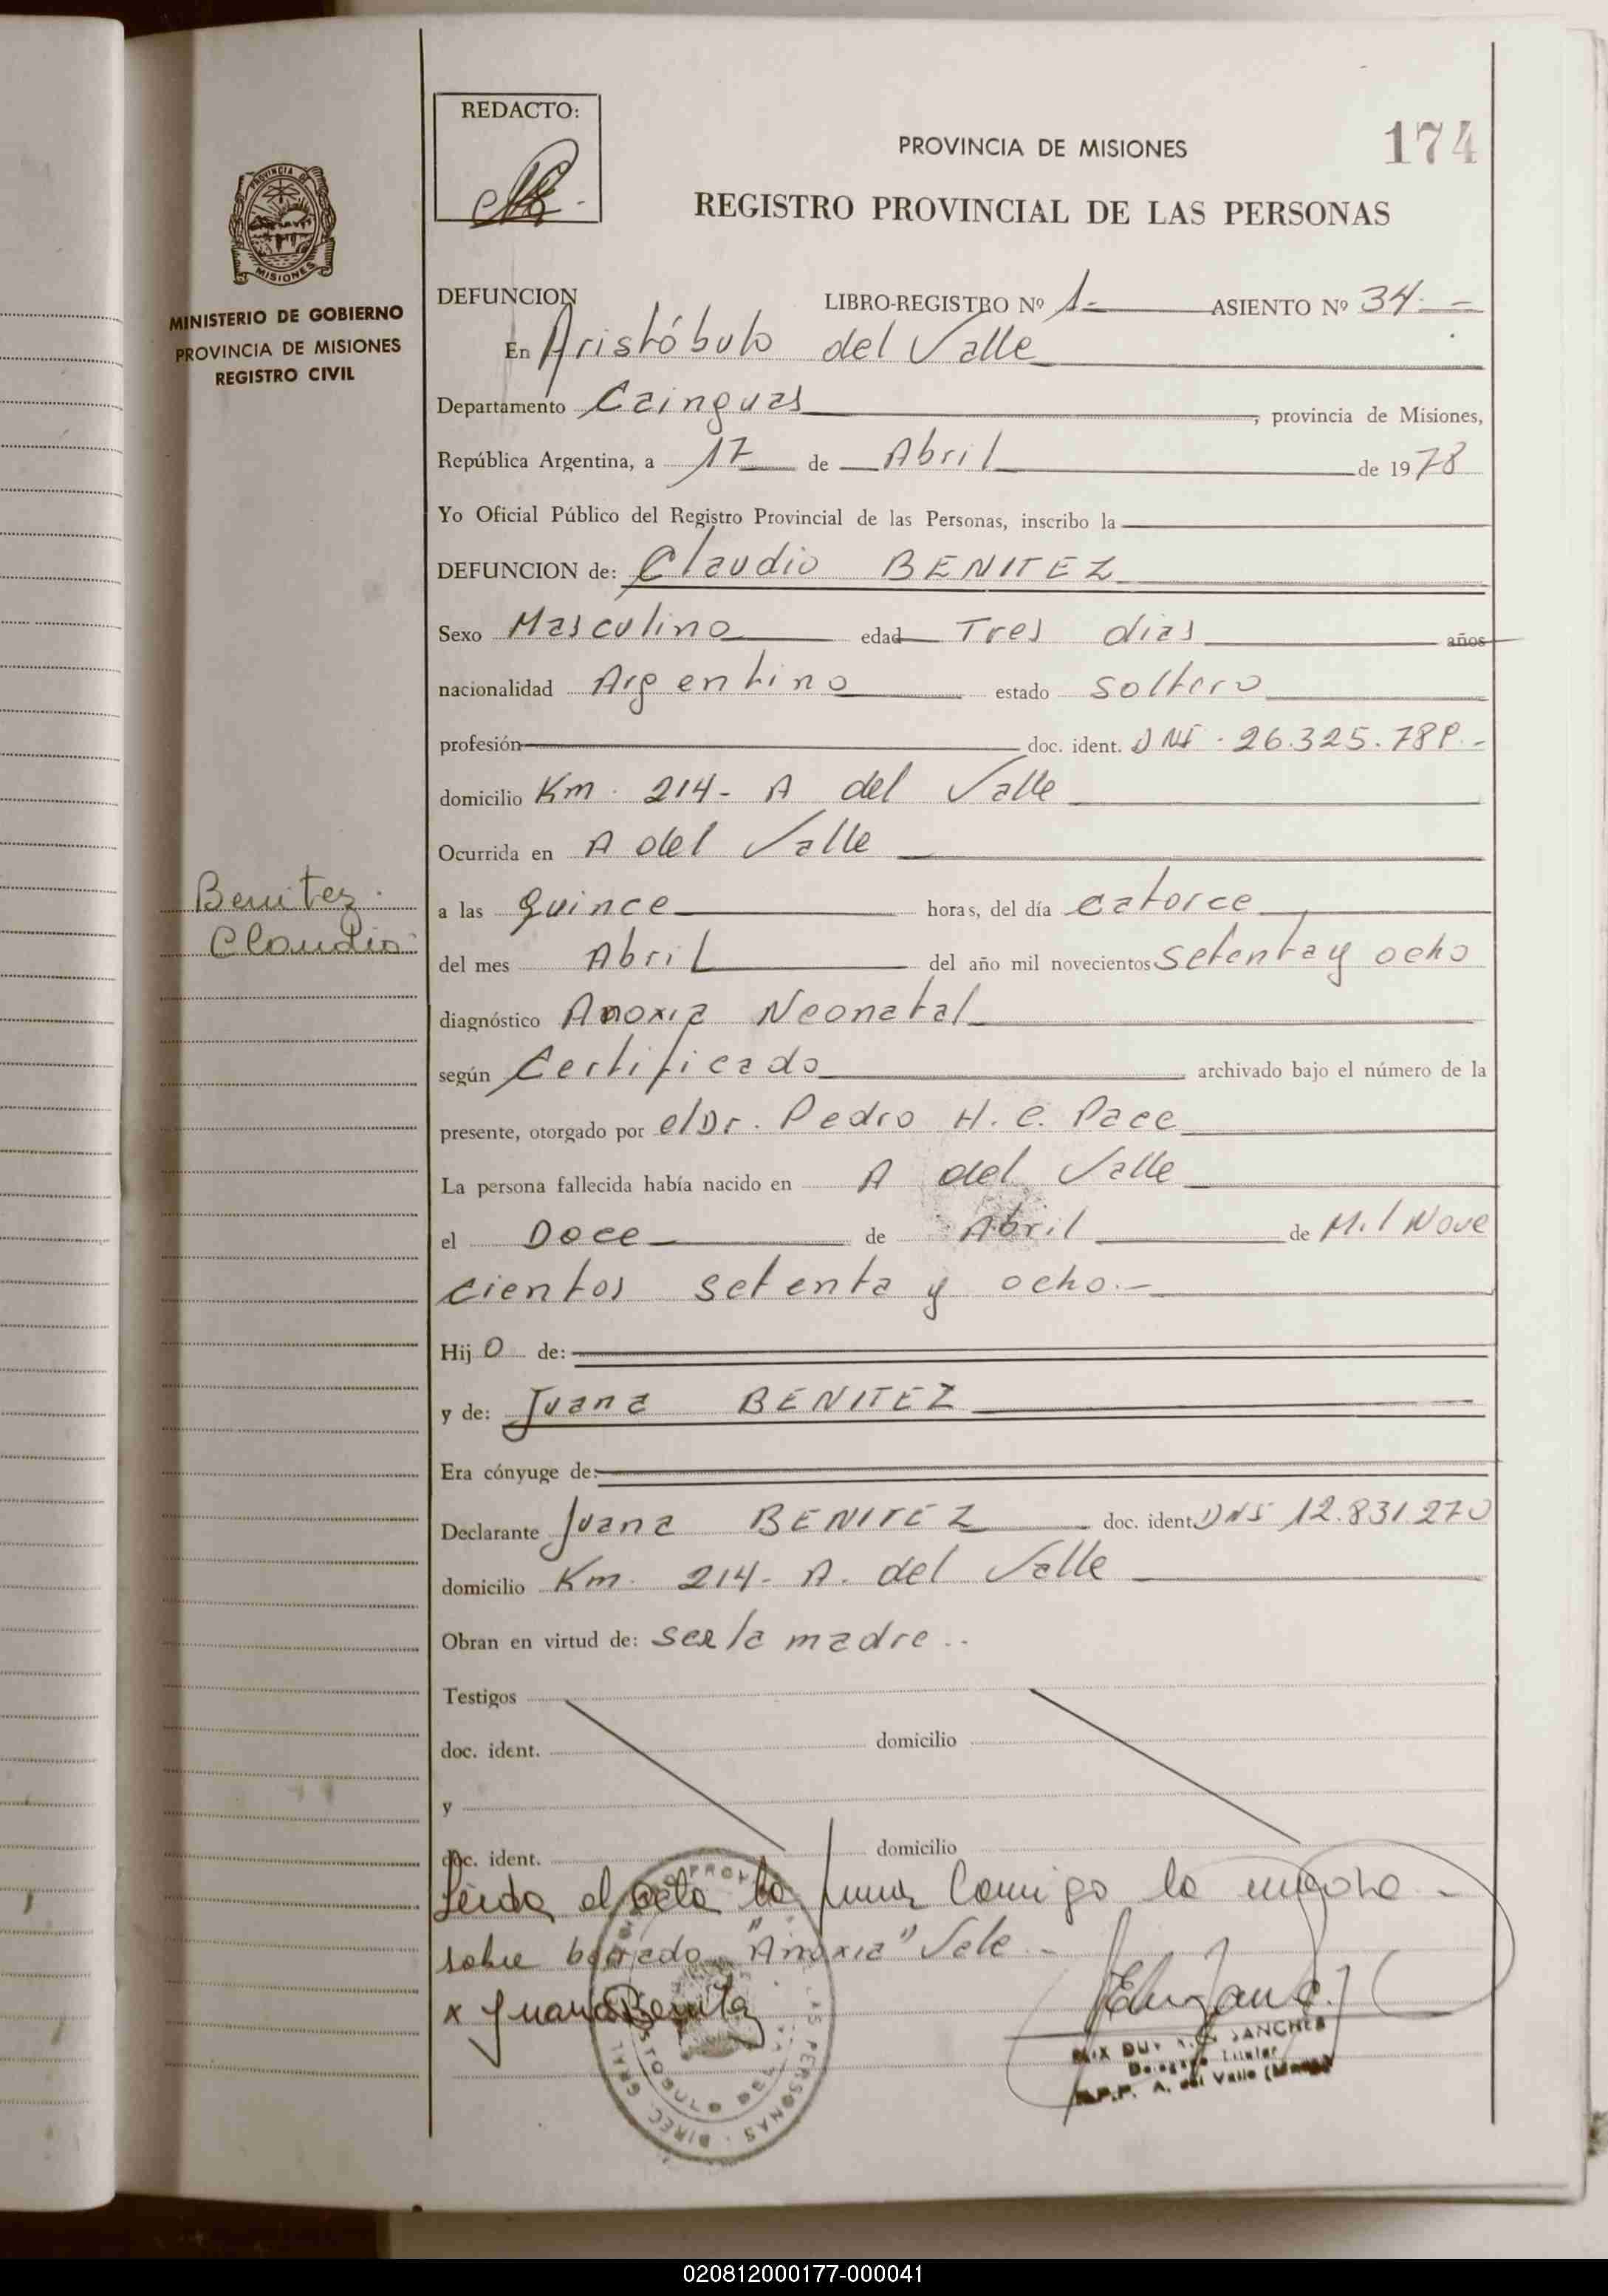 REDACTO:
174
PROVINCIA DE MISIONES
REGISTRO PROVINCIAL DE LAS PERSONAS
PROVINCIA DE
MISIONES
MINISTERIO DE GOBIERNO
PROVINCIA DE MISIONES
REGISTRO CIVIL
DEFUNCION LIBRO-REGISTRO Nº 1.- ASIENTO Nº 34.-
En Aristóbulo del Valle
Departamento Cainguas, provincia de Misiones,
República Argentina, a 17 de Abril de 1978
Yo Oficial Público del Registro Provincial de las Personas, inscribo la
DEFUNCION de: Claudio BENITEZ
Sexo Masculino edad Tres dias años
nacionalidad Argentino estado soltero
profesión doc. ident. DNI. 26.325.
domicilio Km. 214- A del Valle
Ocurrida en A del Valle
Benitez
Claudio
a las quince horas, del día catorce
del mes Abril del año mil novecientos setenta y ocho
diagnóstico Anoxia Neonatal
según Certificado archivado bajo el número de la
presente, otorgado por el Dr. Pedro H. C. Pace
La persona fallecida había nacido en A del Valle
el Doce de Abril de Mil Nove
cientos setenta y ocho.-
Hijo de:
y de: Juana BENITEZ
Era cónyuge de:
Declarante Juana BENITEZ doc. ident. DNI 12.831.270
domicilio Km. 214- A. del Valle
Obran en virtud de: ser la madre..
Testigos
doc. ident. domicilio
y
doc. ident. domicilio
Leida el acta la firma Conmigo la
sobre borrado "Anoxia" Vale.-
x Juana Benitez
SANCHEZ
Delegado Titular
R.P.P. A. del Valle
020812000177-000041